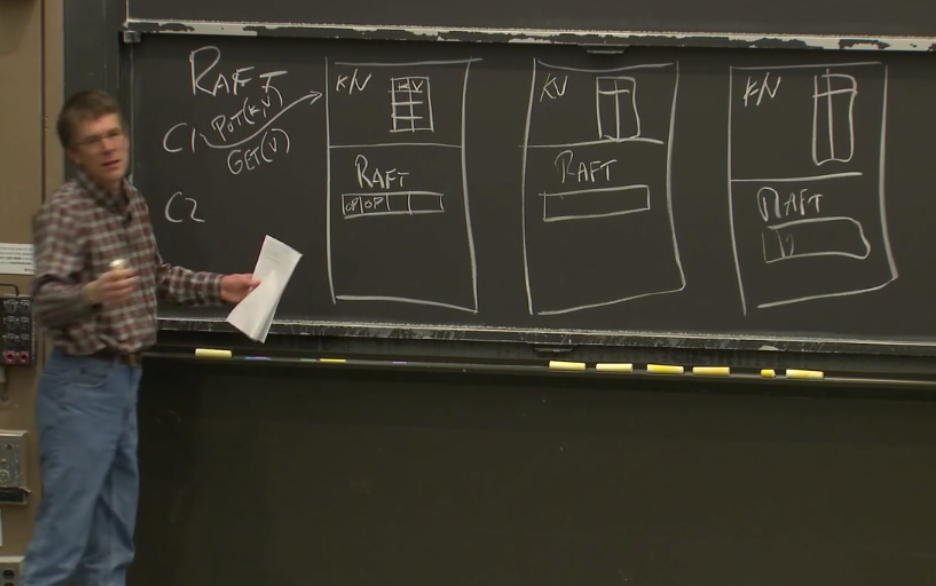 RAFT
C1 PUT(K,V)
GET(V)
C2
KV
KV
RAFT
OP OP
KV
RAFT
KV
RAFT